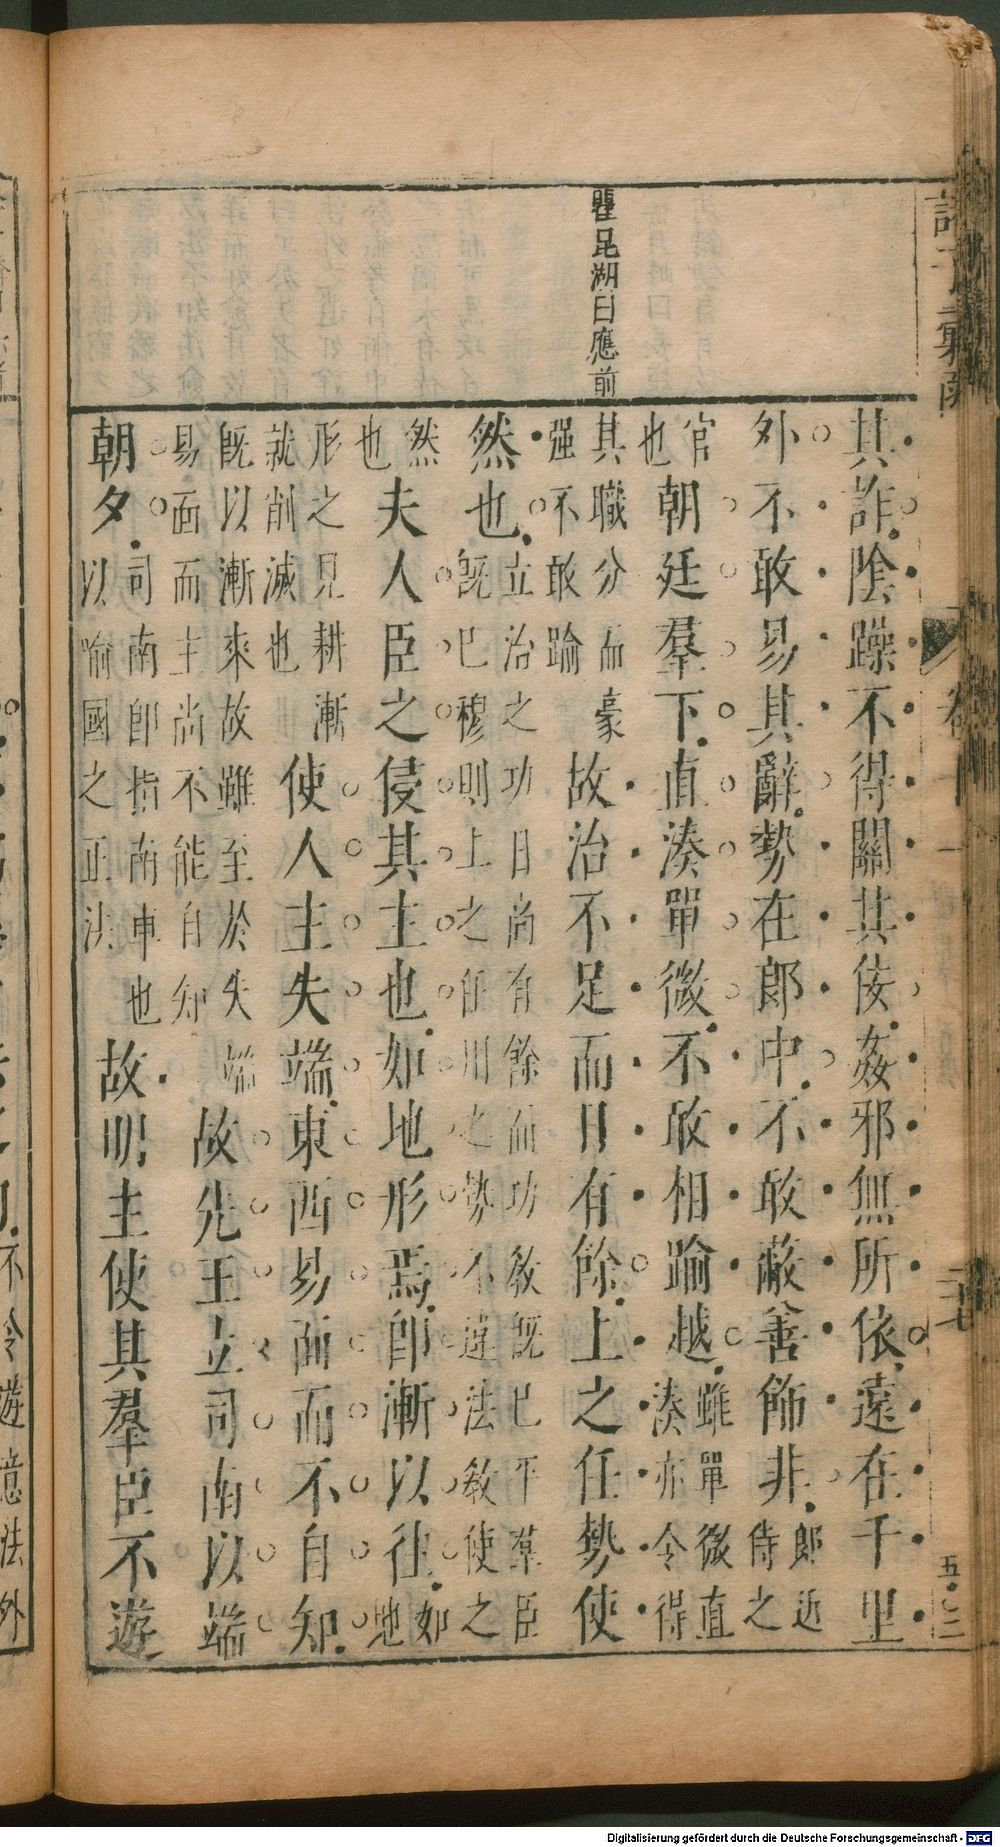 諸子彙函
卷十一
二十七
瞿昆湖曰應前
其詐陰躁不得關其佞姦邪無所依遠在千里
外不敢易其辭勢在郎中不敢蔽善飾非郎近侍之
官也朝廷羣下直湊單微不敢相踰越雖單微直湊亦令得
其職分而豪强不敢踰故治不足而日有餘上之任勢使
然也立治之功日尚有餘而功敎既已平羣臣既已穆則上之任用之勢不違法敎使之
然也夫人臣之侵其主也如地形焉即漸以往如地
形之見耕漸就削滅也使人主失端東西易面而不自知
既以漸來故雖至於失端易面而主尚不能自知故先王立司南以端
朝夕司南即指南車也以喻國之正法故明主使其羣臣不遊
不令遊意法外
Digitalisierung gefördert durch die Deutsche Forschungsgemeinschaft - DFG